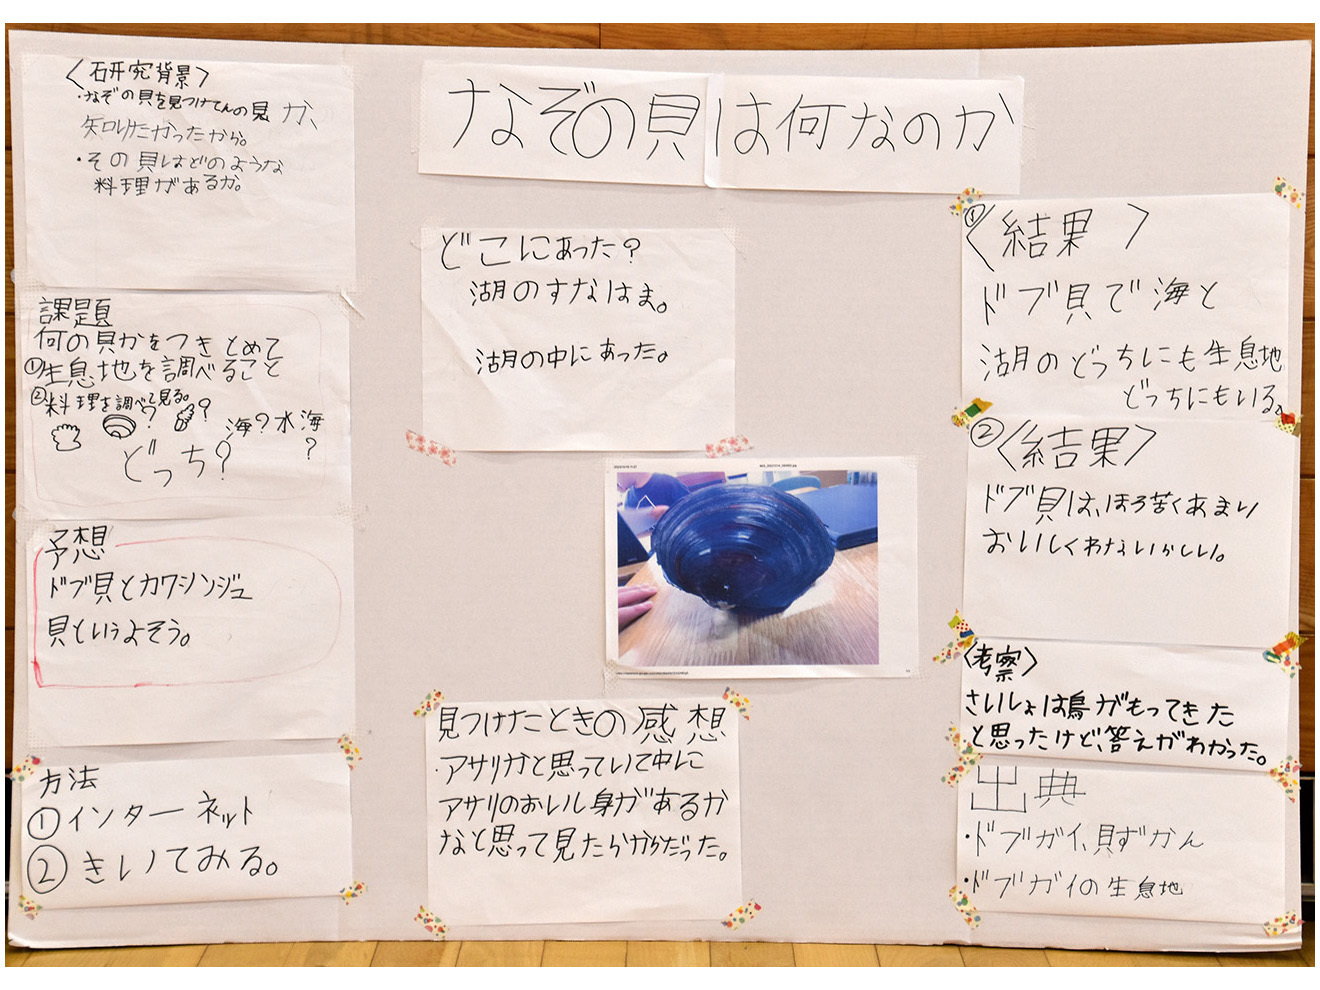 なぞの貝は何なのか
〈研究背景〉
・なぞの貝を見つけてんの見か、
知りたかったから。
・その貝はどのような
料理があるか。
課題
何の貝かをつきとめて
①生息地を調べること
②料理を調べて見る。
? ?
海?水海
?
どっち?
予想
ドブ貝とカワシンジュ
貝というよそう。
方法
①インターネット
②きいてみる。
どこにあった?
湖のすなはま。
湖の中にあった。
見つけたときの感想
・アサリかと思っていて中に
アサリのおいし身があるか
なと思って見たらからだった。
①〈結果〉
ドブ貝で海と
湖のどっちにも生息地
どっちにもいる。
②〈結果〉
ドブ貝は、ほろ苦くあまり
おいしくわないらしい。
〈考察〉
さいしょは鳥がもってきた
と思ったけど、答えがわかった。
出典
・ドブガイ、貝ずかん
・ドブガイの生息地